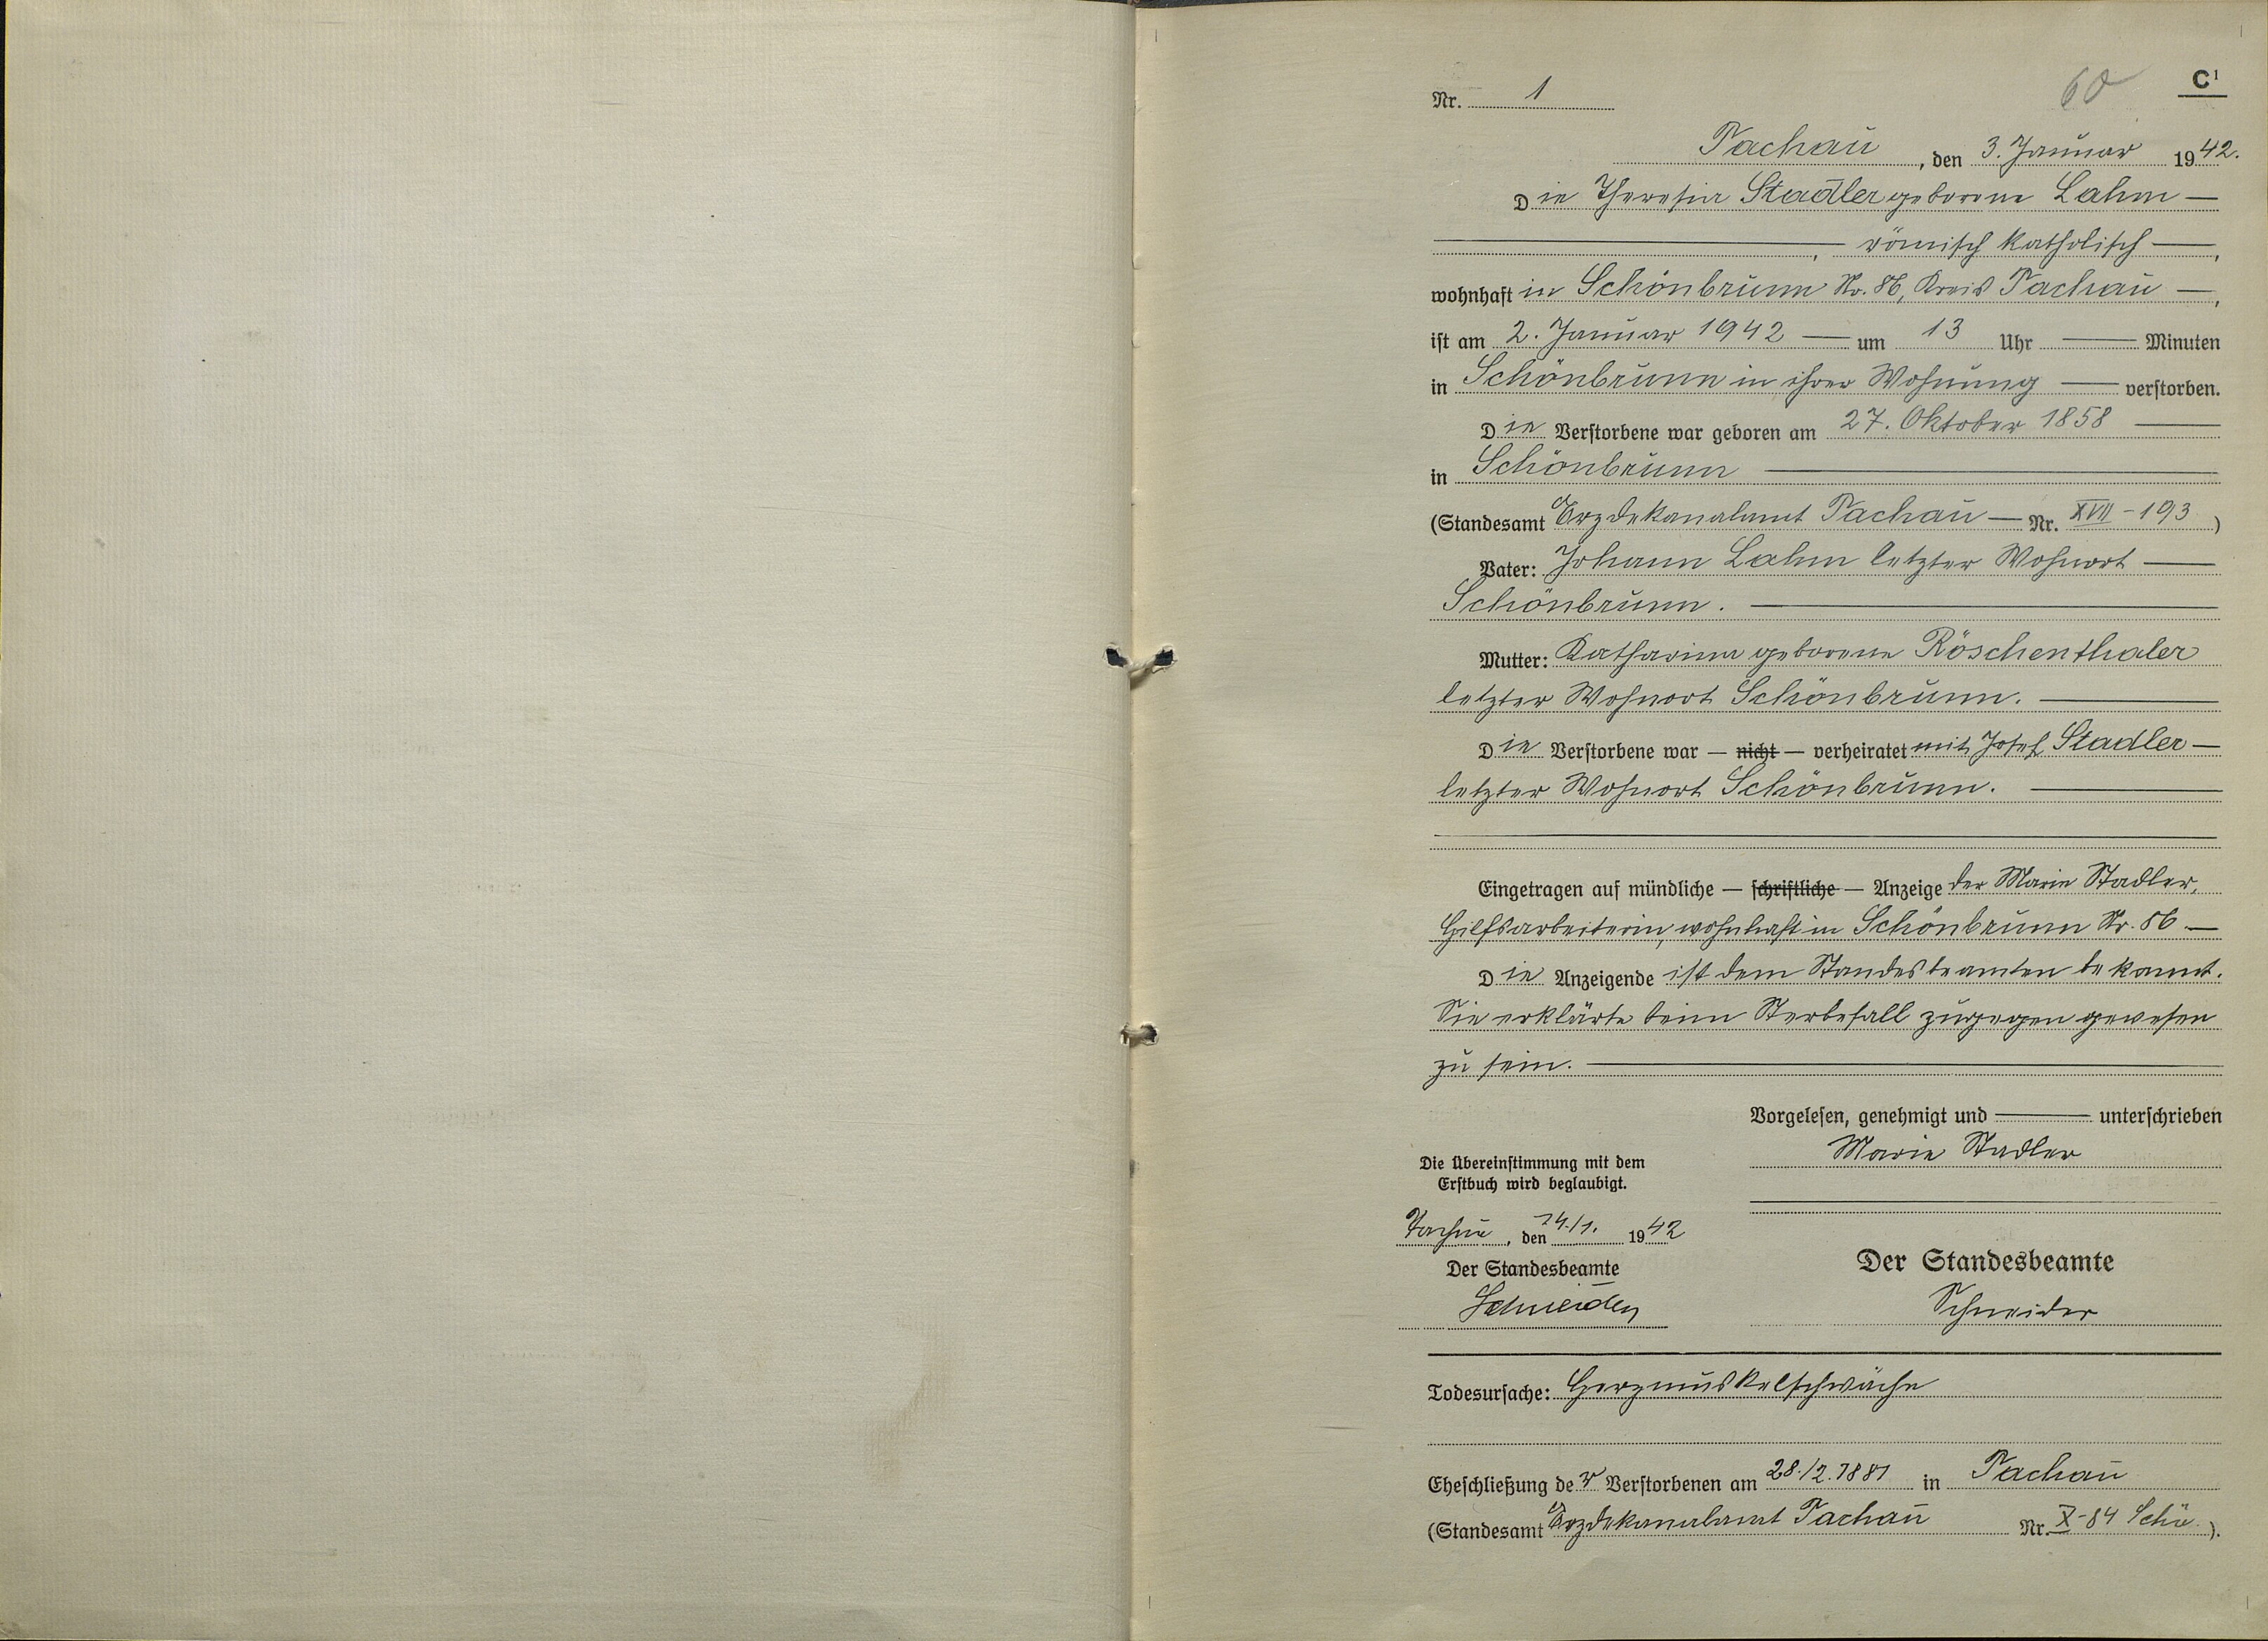 C¹
60
Nr. 1
Tachau, den 3. Januar 1942.
Die Theresia Stadler geborene Lahm —
—, römisch katholisch —,
wohnhaft in Schönbrunn Nr. 86, Kreis Tachau —,
ist am 2. Januar 1942 — um 13 Uhr — Minuten
in Schönbrunn in ihrer Wohnung — verstorben.
Die Verstorbene war geboren am 27. Oktober 1858 —
in Schönbrunn —
(Standesamt Erzdekanalamt Tachau — Nr. XVII - 193)
Vater: Johann Lahm letzter Wohnort —
Schönbrunn. —
Mutter: Katharina geborene Röschenthaler
letzter Wohnort Schönbrunn. —
Die Verstorbene war — nicht — verheiratet mit Josef Stadler —
letzter Wohnort Schönbrunn. —
Eingetragen auf mündliche — schriftliche — Anzeige der Marie Stadler,
Hilfsarbeiterin, wohnhaft in Schönbrunn Nr. 86 —
Die Anzeigende ist dem Standesbeamten bekannt.
Sie erklärte beim Sterbefall zugegen gewesen
zu sein. —
Vorgelesen, genehmigt und — unterschrieben
Marie Stadler
Die Übereinstimmung mit dem
Erstbuch wird beglaubigt.
Tachau, den 24./1. 1942
Der Standesbeamte
Schneider
Der Standesbeamte
Schneider
Todesursache: Herzmuskelschwäche
Eheschließung der Verstorbenen am 28./2. 1881 in Tachau
(Standesamt Erzdekanalamt Tachau Nr. X-84 Schö.).